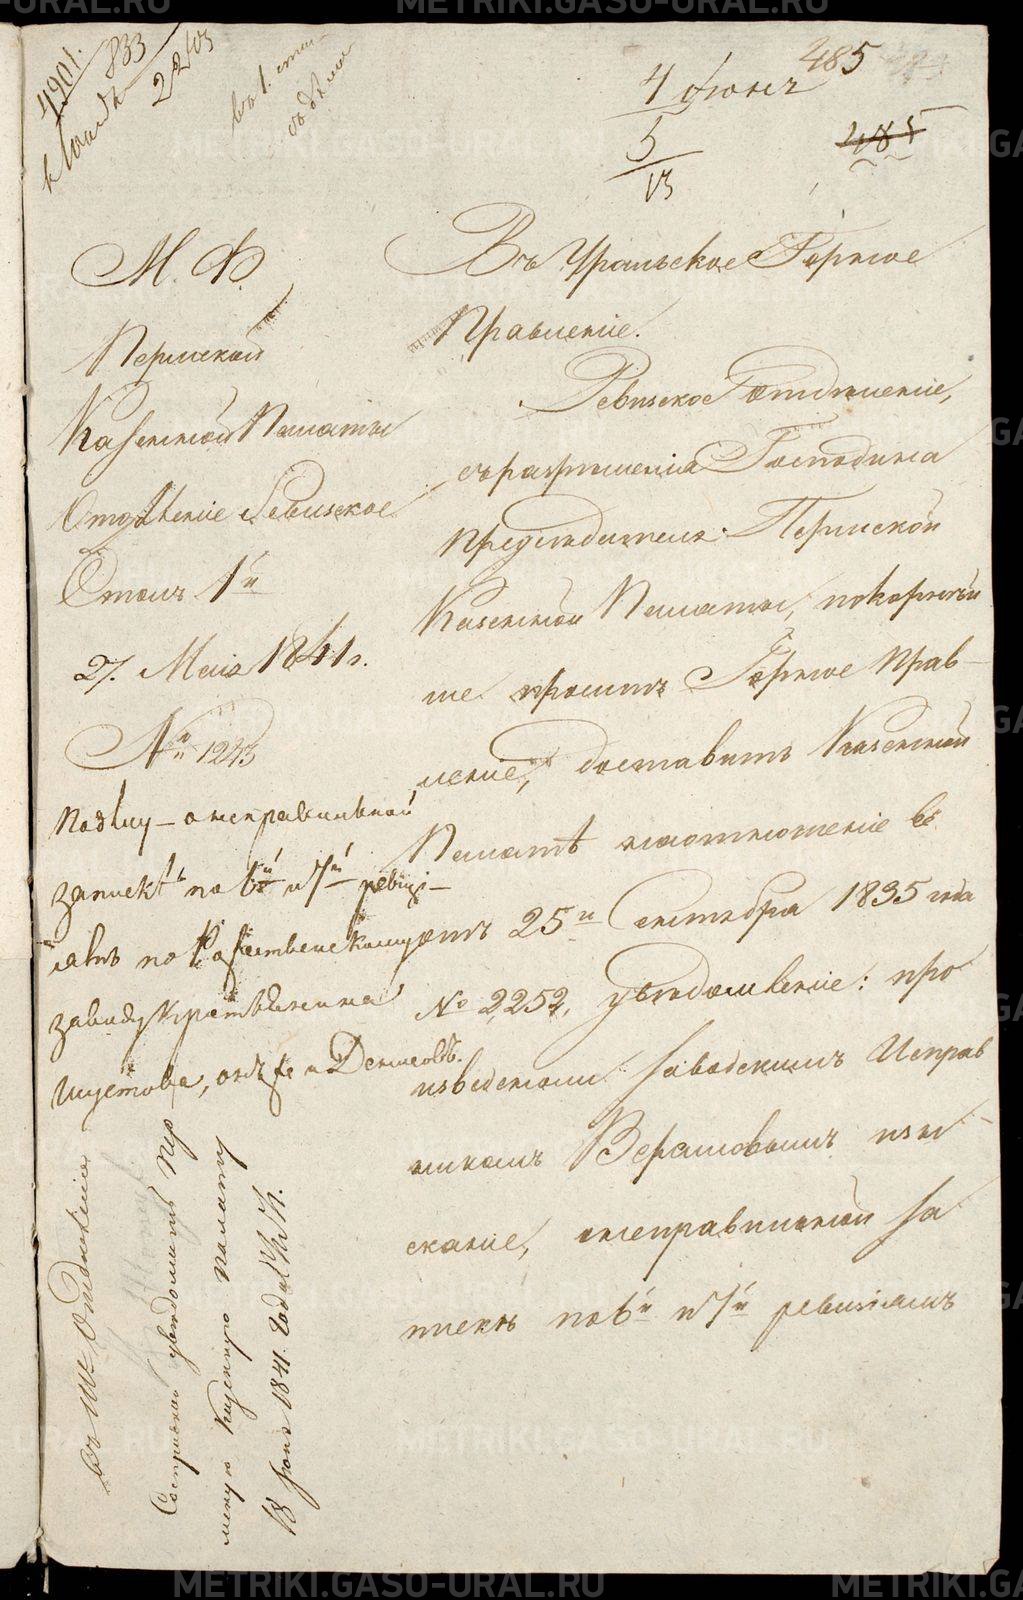 4901.
833
2203
въ 1. стол
4 Июня
485
5
13
485
М. Ф.
Пермской
Казенной Палаты
Отделенiе Ревизское
Столъ 1й
27. Мая 1841 г.
№ 1243
по делу о неправильной
записке по 6й и 7й ревизi-
ямъ по Рожественскому
заводу Крестьянина
Шустова, онъ же и Денисовъ.
Въ Уральское Горное
Правленiе.
Ревизское Отделенiе,
съ разрешенiя Господина
Председателя Пермской
Казенной Палаты, покорней
ше проситъ Горное Прав-
ленiе, доставить Казенной
Палатѣ на отношенiе ея
отъ 25го Сентября 1835 года
№ 2,252, уведомленiе: про
изведено ли Заводскимъ Исправ
никомъ изы
сканiе, о неправильной за
писке по 6й и 7й ревизiямъ
въ Отделенiя
уведомить Пер
мскую Казенную Палату
18 Iюня 1841. года №
METRIKI.GASO-URAL.RU